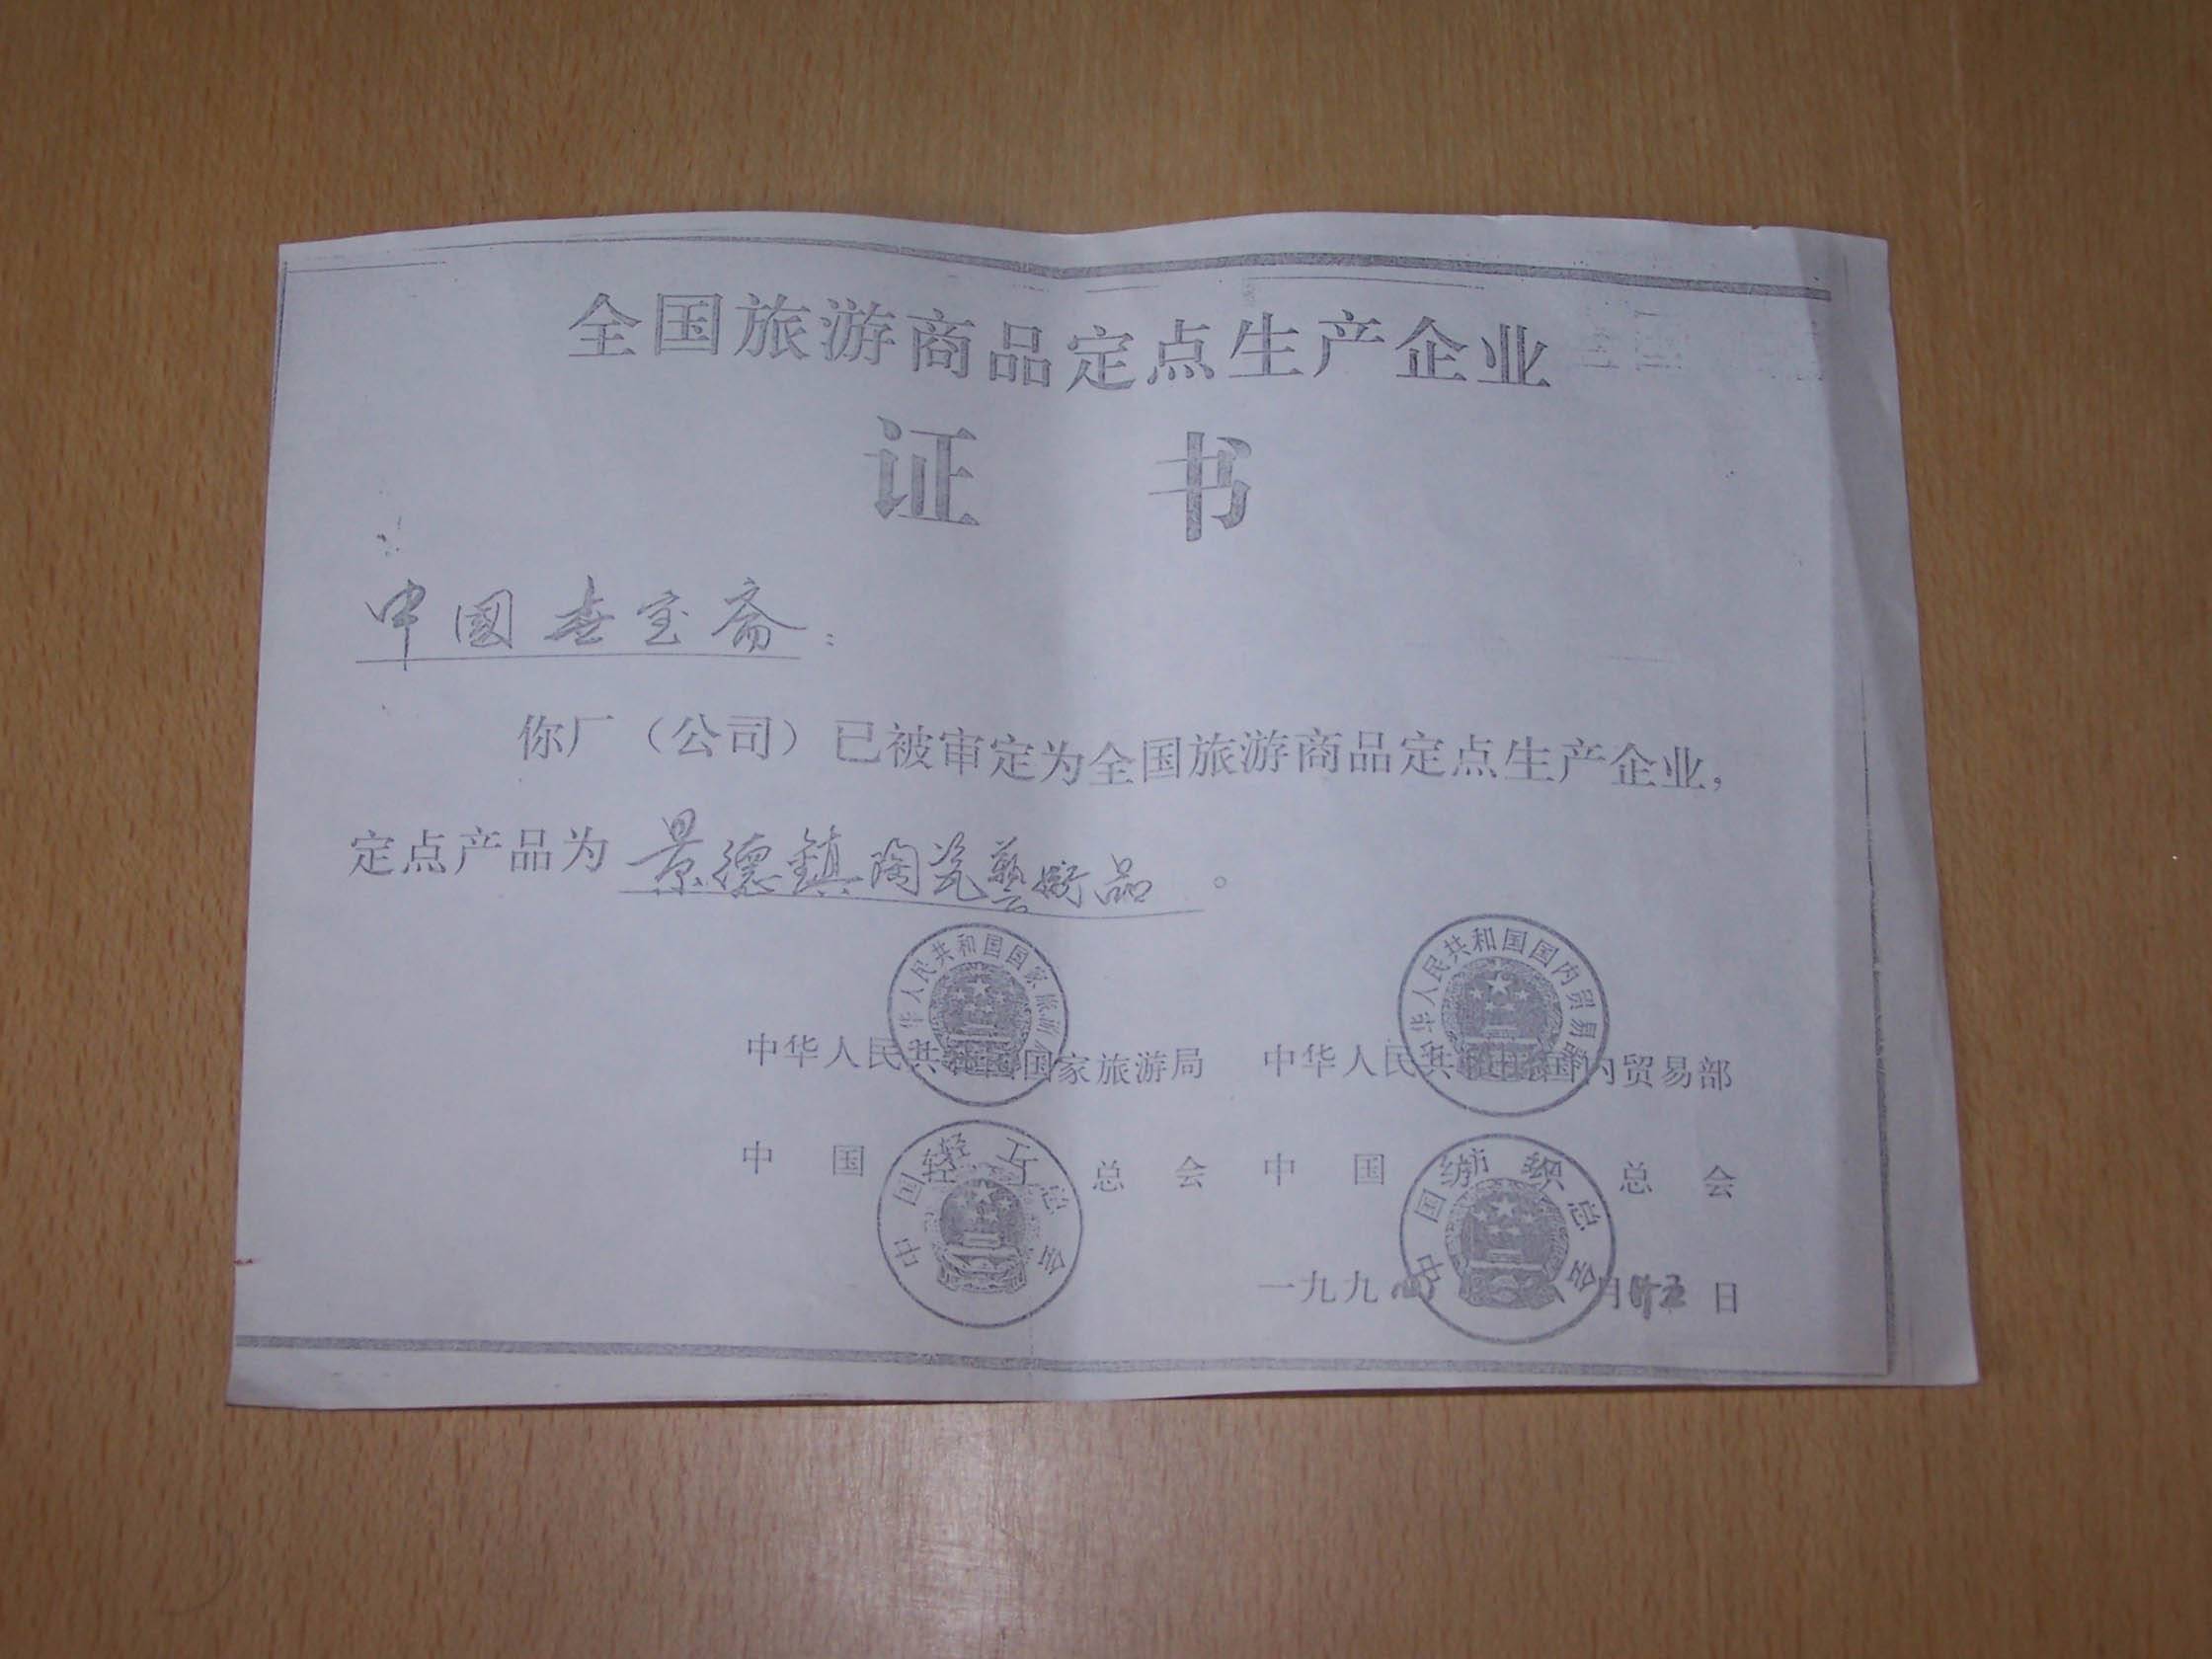 全国旅游商品定点生产企业
证 书
中國 宝斋：
你厂（公司）已被审定为全国旅游商品定点生产企业，
定点产品为景德鎮陶瓷藝術品。
中华人民共和国国家旅游局 中华人民共和国国内贸易部
中国轻工总会 中国纺织总会
一九九 月 日
中华人民共和国国家旅游局
中华人民共和国国内贸易部
中国轻工总会
中国纺织总会